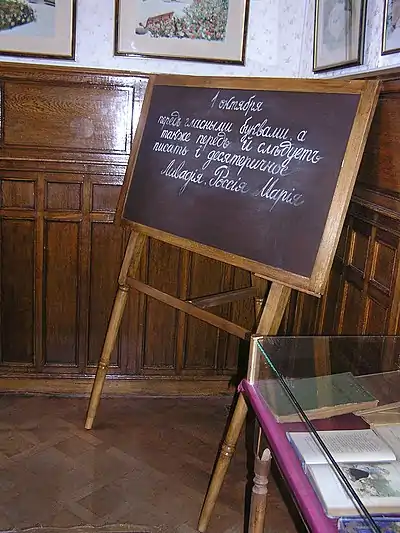 1 октября
передъ гласными буквами, а
также передъ й слѣдуетъ
писать і десятеричное
Ливадія, Россія Марія